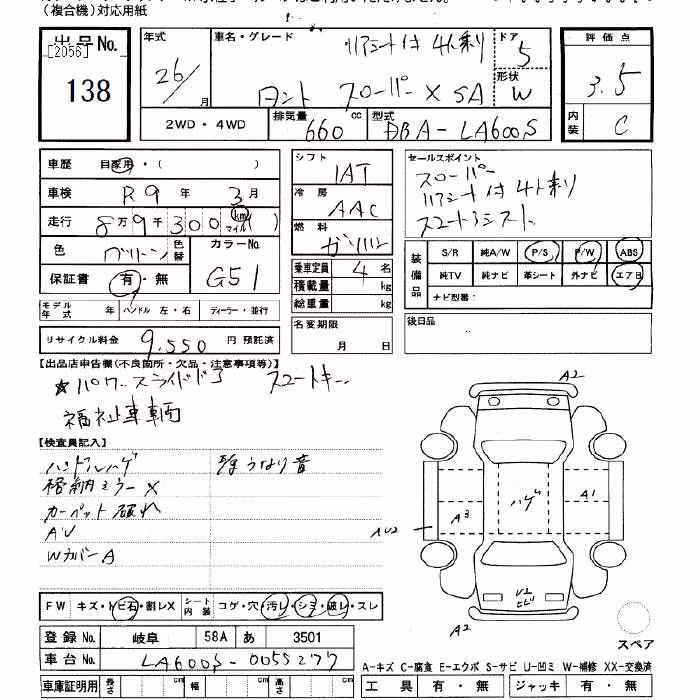 (複合機)対応用紙
出品No.
[2056]
138
年式
26/
月
車名・グレード
リアシート付 4人乗り
タント スローパー X SA
ドア
5
形状
W
評価点
3.5
内装
C
2WD・4WD
排気量
660
cc
型式
DBA-LA600S
車歴 自家用・( )
車検 R9 年 3 月
走行 8万9千300 km マイル
色 グリーン 色替
カラーNo.
G51
保証書 有・無
モデル年式 年 ハンドル 左・右 ディーラー・並行
リサイクル料金 9,550 円 預託済
シフト
IAT
冷房
AAC
燃料
ガソリン
乗車定員 4 名
積載量 kg
総重量 kg
名変期限
月 日
セールスポイント
スローパー
リアシート付 4人乗り
スマートアシスト
装備品
S/R 純A/W P/S P/W ABS
純TV 純ナビ 革シート 外ナビ エアB
ナビ型番:
後日品
【出品店申告欄(不良箇所・欠品・注意事項等)】
★パワースライドドア スマートキー
福祉車輌
【検査員記入】
ハンドルハゲ
格納ミラーX
カーペット破れ
AU
WカバーA
うなり音
A2
ハゲ
A1
A3
AU2
U2
ヒビ
A2
スペア
FW キズ・トビ石・割レX シート内装 コゲ・穴・汚レ・シミ・破レ・スレ
登録No. 岐阜 58A あ 3501
車台No. LA600S-0055277
A-キズ C-腐食 E-エクボ S-サビ U-凹ミ W-補修 XX-交換済
車庫証明用 長さ cm 幅 cm 高さ cm
工具 有・無 ジャッキ 有・無